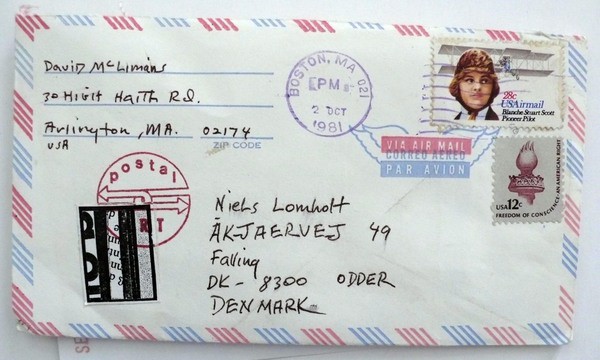 David McLimans
30 Hight Haith Rd.
Arlington, MA. 02174
USA
ZIP CODE
BOSTON, MA 021
PM
2 OCT
1981
28c
USAirmail
Blanche Stuart Scott
Pioneer Pilot
VIA AIR MAIL
CORREO AEREO
PAR AVION
USA 12c
FREEDOM OF CONSCIENCE: AN AMERICAN RIGHT
postal
RT
Niels Lomholt
ÅKJAERVEJ 49
Falling
DK - 8300 ODDER
DENMARK